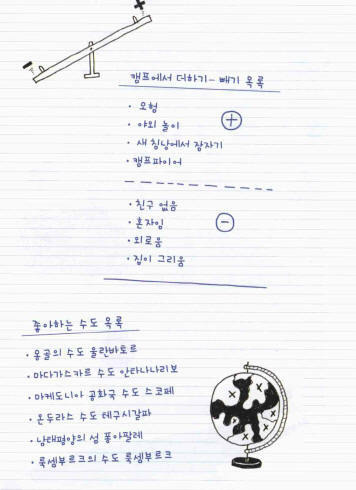 +
-
캠프에서 더하기 - 빼기 목록
· 모험
· 야외 놀이
+
· 새 침낭에서 잠자기
· 캠프파이어
· 친구 없음
· 혼자임
-
· 외로움
· 집이 그리움
좋아하는 수도 목록
· 몽골의 수도 울란바토르
· 마다가스카르 수도 안타나나리보
· 마케도니아 공화국 수도 스코페
· 온두라스 수도 테구시갈파
· 남태평양의 섬 퐁아팔레
· 룩셈부르크의 수도 룩셈부르크